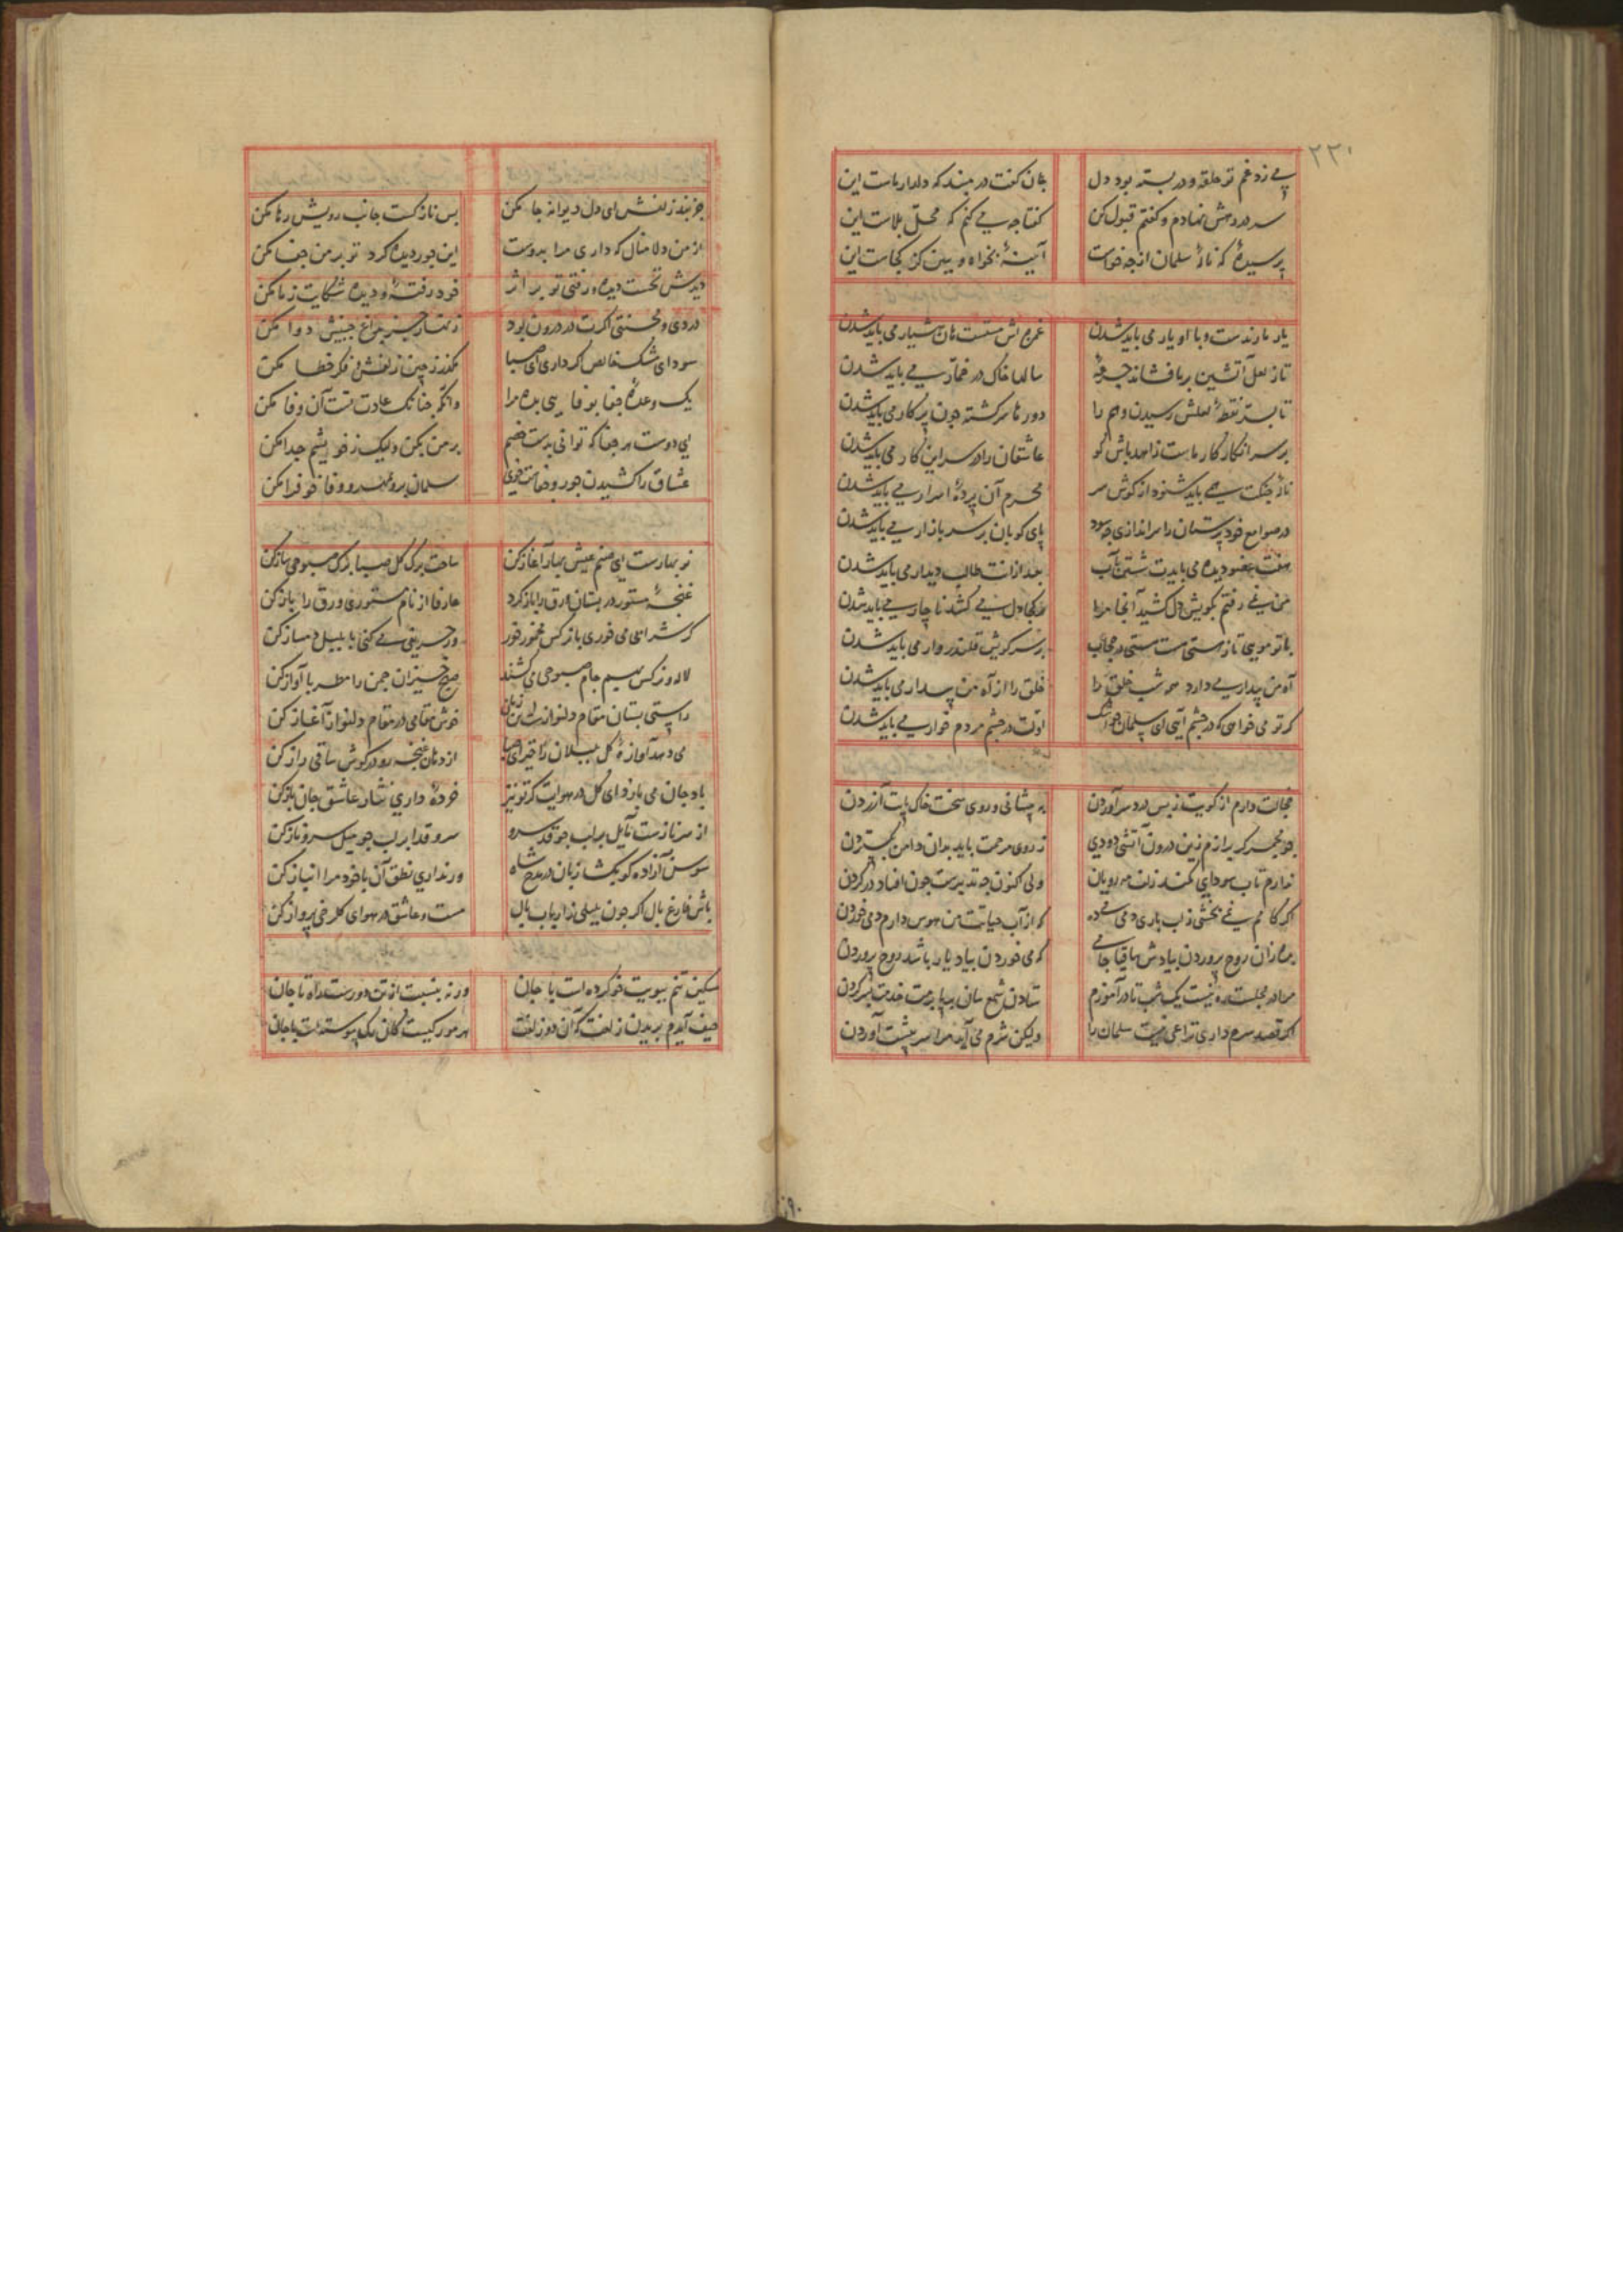 ۲۲۰
می زد غم تو حلقه و در بسته بود دل
جان گفت در مبند که دلدار ماست این
سر در رهش نهادم و گفتم قبول کن
گفتا چه می کنم که محل بلاست این
پرسیدهٔ که نالهٔ سلمان از چه خواست
آیینهٔ بخواه و ببین کز کجاست این
یار ما رندست و با او یار می باید شدن
هشیار می باید شدن
تا ز لعل آتشین بر ما فشاند جرعهٔ
سالها خاک در خمار می باید شدن
تا بسر نقطهٔ لعلش رسیدن وهم را
دورها سرگشته چون پرگار می باید شدن
بر سر انکار کار ماست زاهد باش گو
عاشقان را در سر این کار می باید شدن
نالهٔ چنگت همی باید شنود از گوش سر
محرم آن پردهٔ اسرار می باید شدن
در صوامع خودپرستان را سراندازی چه سود
پای کوبان بر سر بازار می باید شدن
دیده می بایدت شستن بآب
بعد از آنت طالب دیدار می باید شدن
من نمی رفتم بکویش دل کشید آنجا مرا
هر کجا دل می کشد ناچار می باید شدن
با تو مویی تا ز هستی هست هستی در حجاب
بر سر کویش قلندروار می باید شدن
آه من بیدار می دارد همه شب خلق را
خلق را از آه من بیدار می باید شدن
گر تو می خواهی که در چشم آیی ای سلمان چو اشک
اولت در چشم مردم خوار می باید شدن
خجالت دارم از کویت ز بس دردسر آوردن
به پیشانی و روی سخت خاک پات آزردن
چو مجمر گر برآرم زین درون آتشی دودی
ز روی مرحمت باید بدان دامن بگستردن
ندارم تاب سودای کمند زلف مه رویان
ولی اکنون چه تدبیرست چون افتاد در گردن
اگر کامم نمی بخشی ز لب باری دمی می ده
که از آب حیاتت من هوس دارم دمی خوردن
بهاران روح پروردن بیادش ساقیا جامی
که می خوردن بیاد یار باشد روح پروردن
مرا در مجلست ره نیست یک شب تا درآموزم
ستادن شمع سان بر پا بسر خدمت بسر کردن
اگر قصد سرم داری نزاعی نیست سلمان را
ولیکن شرم می آید مرا سر پیشت آوردن
جز بند زلفش ای دل دیوانه جا مکن
بس نازکست جانب رویش رها مکن
از من دلا منال که داری مرا بدوست
این جور دیده کرد تو بر من جفا مکن
دیدش نخست دیده و رفتی تو بر اثر
خود رفتهٔ و دیده شکایت ز ما مکن
دردی و محنتی اگرت در درون بود
زنهار دوا مکن
سودای مشک خالص اگر داری ای صبا
مگذر ز چین زلفش و فکر خطا مکن
یک وعدهٔ جفا بوفایی بده مرا
وانگه چنانک عادت تست آن وفا مکن
ای دوست هر جفا که توانی بدست خصم
بر من بکن ولیک ز خویشم جدا مکن
عشاق را کشیدن جور و جفاست خوی
سلمان برو بمهر و وفا خو فرا مکن
نوبهارست ای صنم عیش بهار آغاز کن
ساخت برگ گل صبا برگ صبوحی ساز کن
غنچهٔ مستور در بستان ورق را باز کرد
عارفا از نام مستوری ورق را باز کن
گر شرابی می خوری با نرگس مخمور خور
ور حریفی می کنی با بلبل دمساز کن
لاله و نرگس بهم جام صبوحی می کشند
صبح خیزان چمن را مطربا آواز کن
راستی بستان مقام دلنوازست این زمان
خوش مقامی در مقام دلنواز آغاز کن
می دهد آوازهٔ گل بلبلان را خیر
از دهان غنچه رو در گوش ساقی راز کن
باد جان می بازد ای گل در هوایت گر تو نیز
خردهٔ داری نثار عاشق جان باز کن
از سر نازست مایل بر لب جو قد سرو
سرو قدا بر لب جو میل سرو ناز کن
سوسن آزاده گو بگشا زبان در مدح شاه
ور نداری نطق آن با خود مرا انباز کن
باش فارغ بال اگر چون بلبلی ز ارباب بال
مست و عاشق در هوای گلرخی پرواز کن
مسکین تنم ببویت خو کرده است با جان
ورنه بنسبت از تن دورست راه تا جان
حیف آیدم بریدن زلفت که آن دو زلفت
هر مو رگیست کان رگ پیوسته است با جان